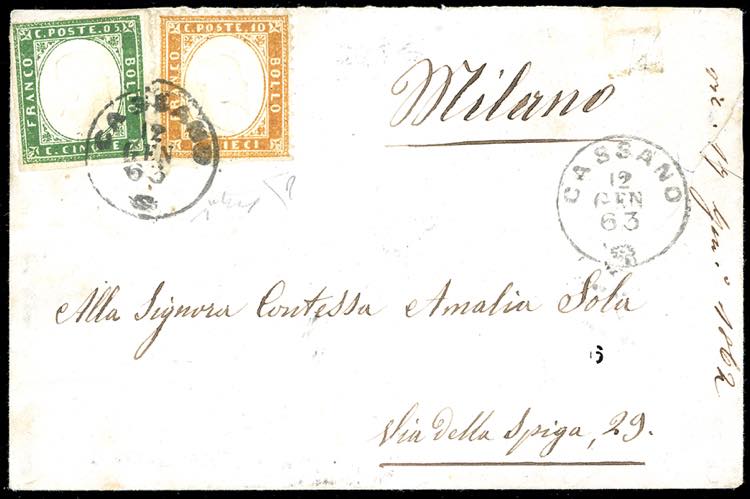 C. POSTE. 05
FRANCO
BOLLO
C. CINQUE
C. POSTE. 10
FRANCO
BOLLO
DIECI
CASSANO
12
GEN
63
Milano
CASSANO
12
GEN
63
Alla Signora Contessa Amalia Sola
6
Via della Spiga, 29.